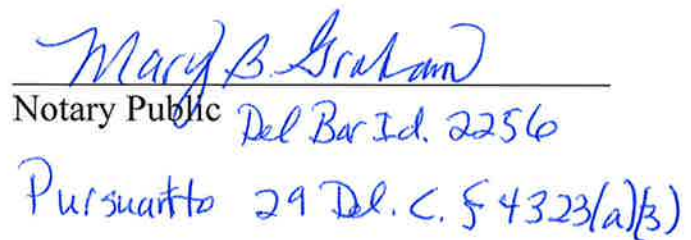 Mary B. Graham
Notary Public Del Bar Id. 2256
Pursuant to 29 Del. C. § 4323(a)(3)